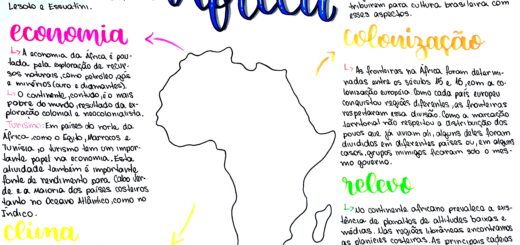 Lesoto e Essuatíni.
África
tribuírem para cultura brasileira com
esses aspectos.
economia
↳ A economia da África é pau-
tada pela exploração de recur-
sos naturais, como petróleo, gás
e minérios (ouro e diamantes).
↳ O continente, contudo, é o mais
pobre do mundo, resultado da ex-
ploração colonial e neocolonialista.
Turismo: Em países do norte da
África, como o Egito, Marrocos e
Tunísia, o turismo tem um impor-
tante papel na economia. Esta
atividade também é importante
fonte de rendimento para Cabo Ver-
de e a maioria dos países costeiros
tanto no Oceano Atlântico, como no
Índico.
clima
colonização
↳ As fronteiras na África foram determi-
nadas entre os séculos 15 e 16, com a co-
lonização européia. Como cada país europeu
conquistou regiões diferentes, as fronteiras
respeitaram essa divisão. Como a marcação
territorial não respeitou a distribuição dos
povos que já viviam ali, alguns deles foram
divididos em diferentes países ou, em alguns
casos, grupos inimigos ficaram sob o mes-
mo governo.
relevo
↳ No continente africano prevalece a exis-
tência de planaltos de altitudes baixas e
médias. Nas regiões litorâneas encontramos
as planícies costeiras. As principais cadeias